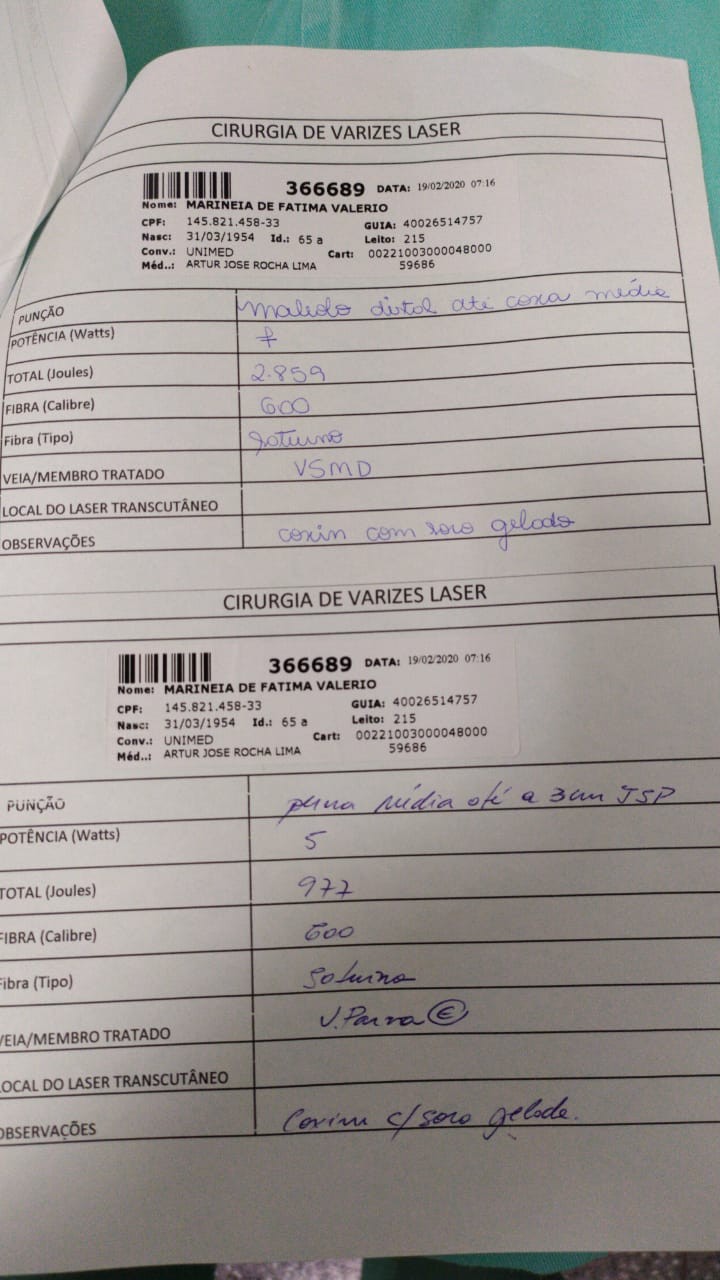 CIRURGIA DE VARIZES LASER
366689 DATA: 19/02/2020 07:16
Nome: MARINEIA DE FATIMA VALERIO
CPF: 145.821.458-33 GUIA: 40026514757
Nasc: 31/03/1954 Id.: 65 a Leito: 215
Conv.: UNIMED Cart: 00221003000048000
Méd..: ARTUR JOSE ROCHA LIMA 59686
PUNÇÃO maleolo distal até coxa média
POTÊNCIA (Watts) 7
TOTAL (Joules) 2.859
FIBRA (Calibre) 600
Fibra (Tipo)
VEIA/MEMBRO TRATADO VSMD
LOCAL DO LASER TRANSCUTÂNEO
OBSERVAÇÕES coxin com soro gelado
CIRURGIA DE VARIZES LASER
366689 DATA: 19/02/2020 07:16
Nome: MARINEIA DE FATIMA VALERIO
CPF: 145.821.458-33 GUIA: 40026514757
Nasc: 31/03/1954 Id.: 65 a Leito: 215
Conv.: UNIMED Cart: 00221003000048000
Méd..: ARTUR JOSE ROCHA LIMA 59686
PUNÇÃO perna média até a 3cm JSP
POTÊNCIA (Watts) 5
TOTAL (Joules) 977
FIBRA (Calibre) 600
Fibra (Tipo)
VEIA/MEMBRO TRATADO V. Parva E
LOCAL DO LASER TRANSCUTÂNEO
OBSERVAÇÕES Coxim c/ soro gelado.